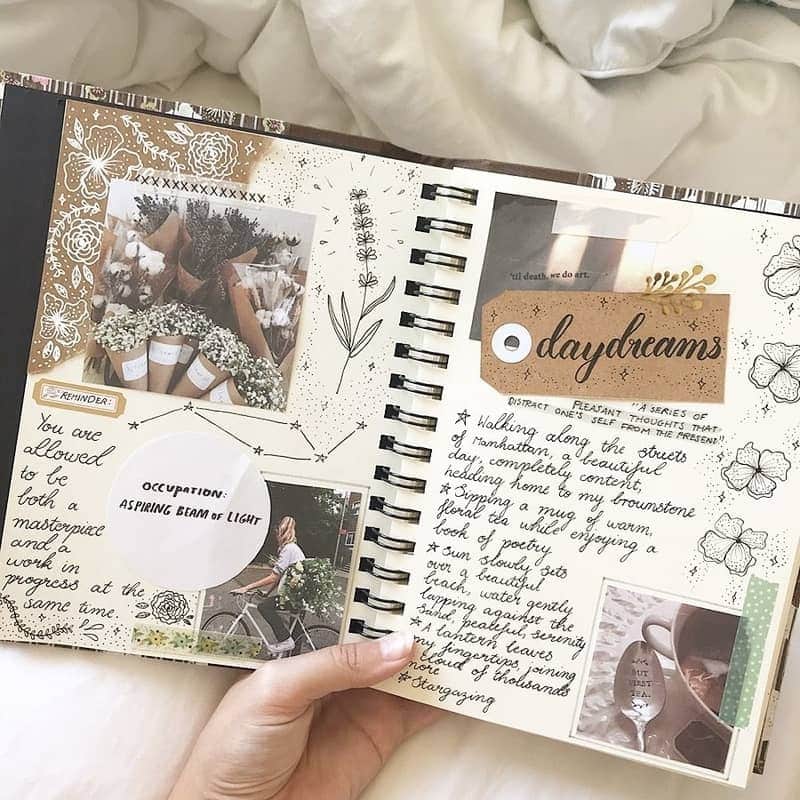 REMINDER:
You are
allowed
to be
both a
masterpiece
and a
work in
progress at the
same time.
OCCUPATION:
ASPIRING BEAM OF LIGHT
'til death, we do art.
daydreams
"A SERIES OF
PLEASANT THOUGHTS THAT
DISTRACT ONE'S SELF FROM THE PRESENT"
★ Walking along the streets
of Manhattan, a beautiful
day, completely content,
heading home to my brownstone
★ Sipping a mug of warm,
floral tea while enjoying a
book of poetry
★ Sun slowly sets
over a beautiful
beach, water gently
lapping against the
sand, peaceful, serenity
★ A lantern leaves
my fingertips, joining
cloud of thousands
more
★ Stargazing
BUT
FIRST
TEA.